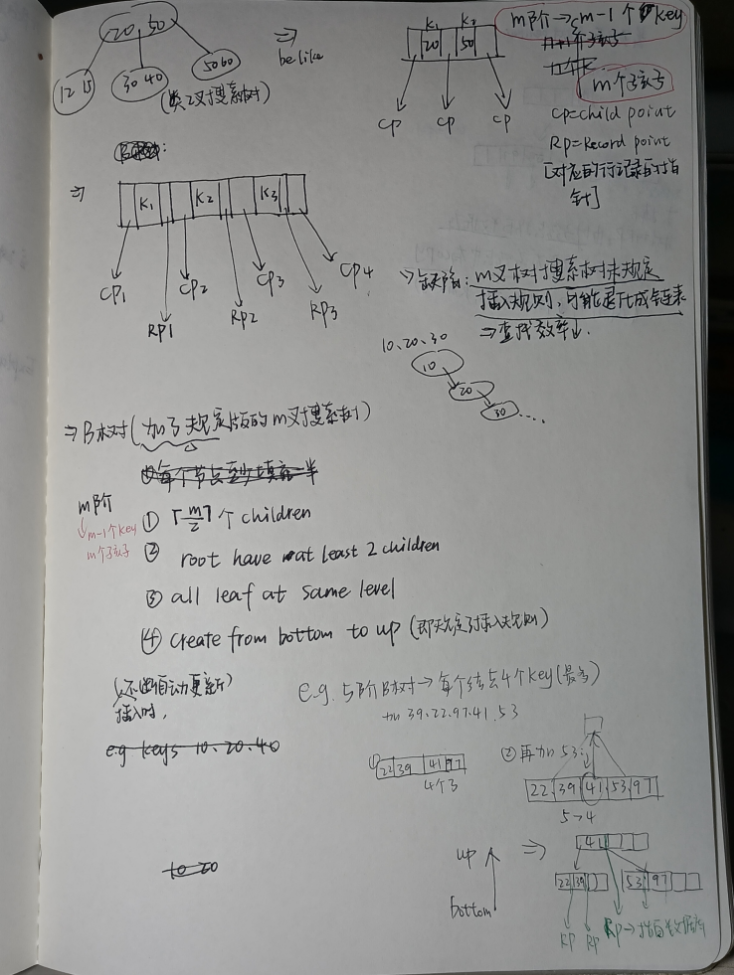 20 50
12 15
30 40
50 60
(类二叉搜索树)
⇒
be like
K₁ K₂
20 50
CP CP CP
m阶→m-1个key
m个孩子
CP=child point
RP=Record point
[对应的行记录的指针]
⇒
K₁ K₂ K₃
CP1 CP2 CP3 CP4
RP1 RP2 RP3
→缺陷:m叉树搜索树未规定
插入规则,可能退化成链表
⇒查找效率↓.
10、20、30
10
20
30 ....
⇒B树(加了规定版的m叉搜索树)
①每个节点至少填充一半
m阶
↓m-1个key
m个孩子
① ⌈m/2⌉个children
② root have at least 2 children
③ all leaf at same level
④ create from bottom to up (即规定了插入规则)
插入时,
e.g keys 10、20、40
10 20
e.g. 5阶B树→每个结点4个key(最多)
加 39、22、97、41、53
① 22 39 41 97
4个了
②再加53:
22 39 41 53 97
5>4
⇒
41
22 39
53 97
up
bottom
RP RP RP